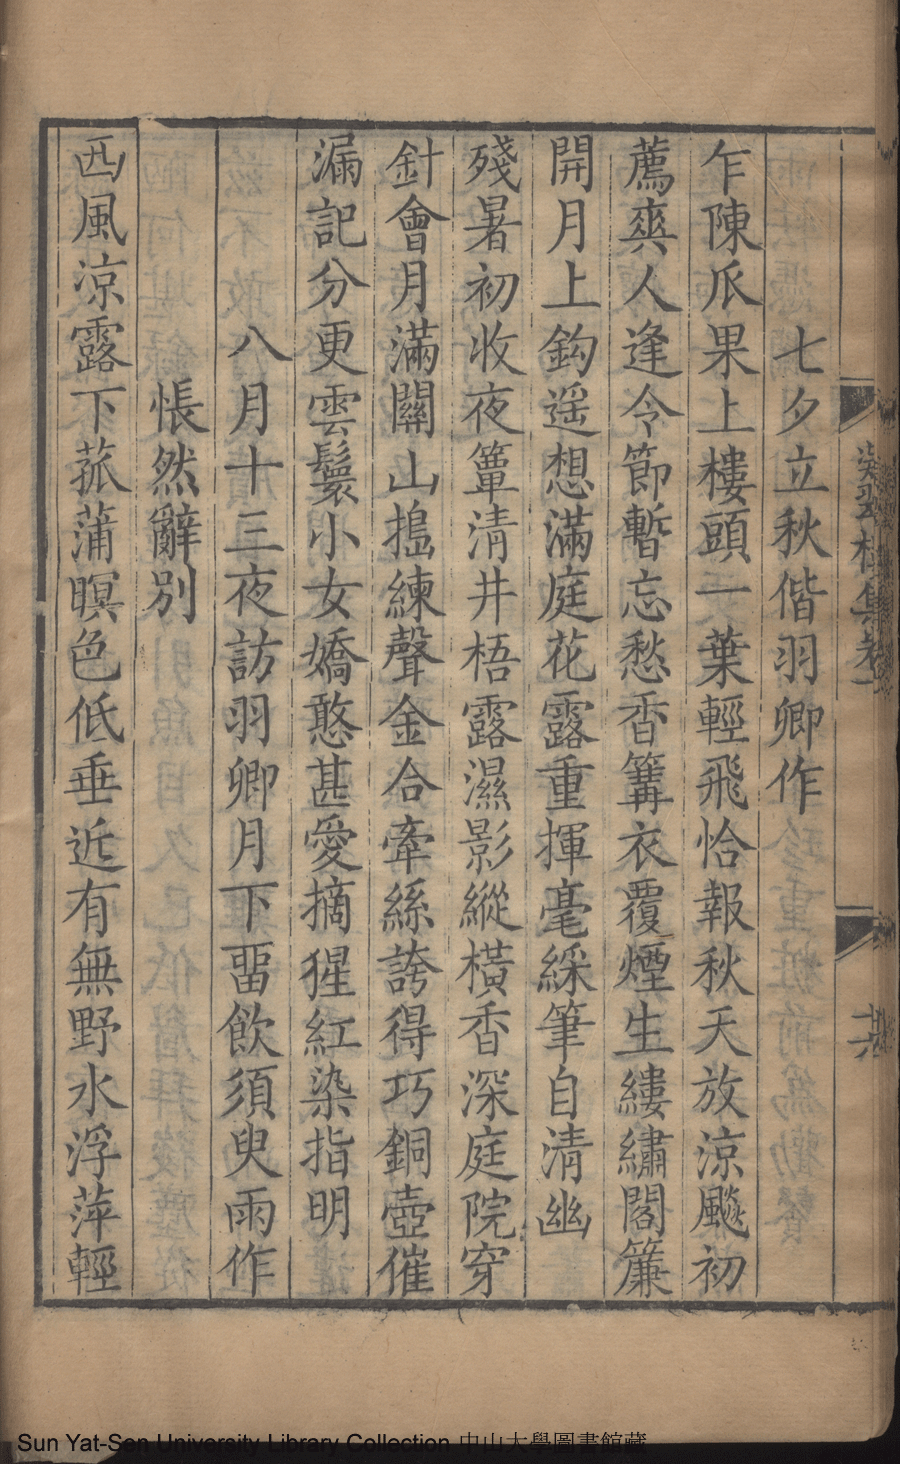 七夕立秋偕羽卿作
乍陳瓜果上樓頭一葉輕飛恰報秋天放涼飇初
薦爽人逢令節暫忘愁香篝衣覆煙生縷繡閣簾
開月上鈎遥想滿庭花露重揮毫綵筆自清幽
殘暑初收夜簟清井梧露濕影縱橫香深庭院穿
針會月滿關山搗練聲金合牽絲誇得巧銅壺催
漏記分更雲鬟小女嬌憨甚愛摘猩紅染指明
八月十三夜訪羽卿月下畱飲須臾雨作
悵然辭別
西風凉露下菰蒲暝色低垂近有無野水浮萍輕
翠桂集卷一
共
Sun Yat-Sen University Library Collection 中山大學圖書館藏